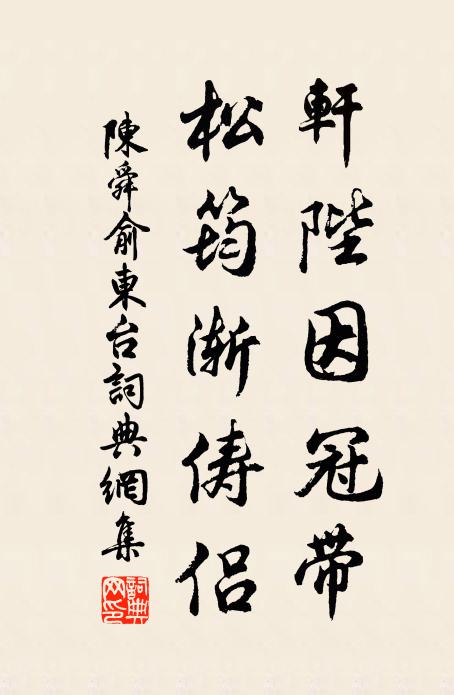 軒陛因冠帶
松筠漸儔侶
陳舜俞東台詞典網集
詞典网印